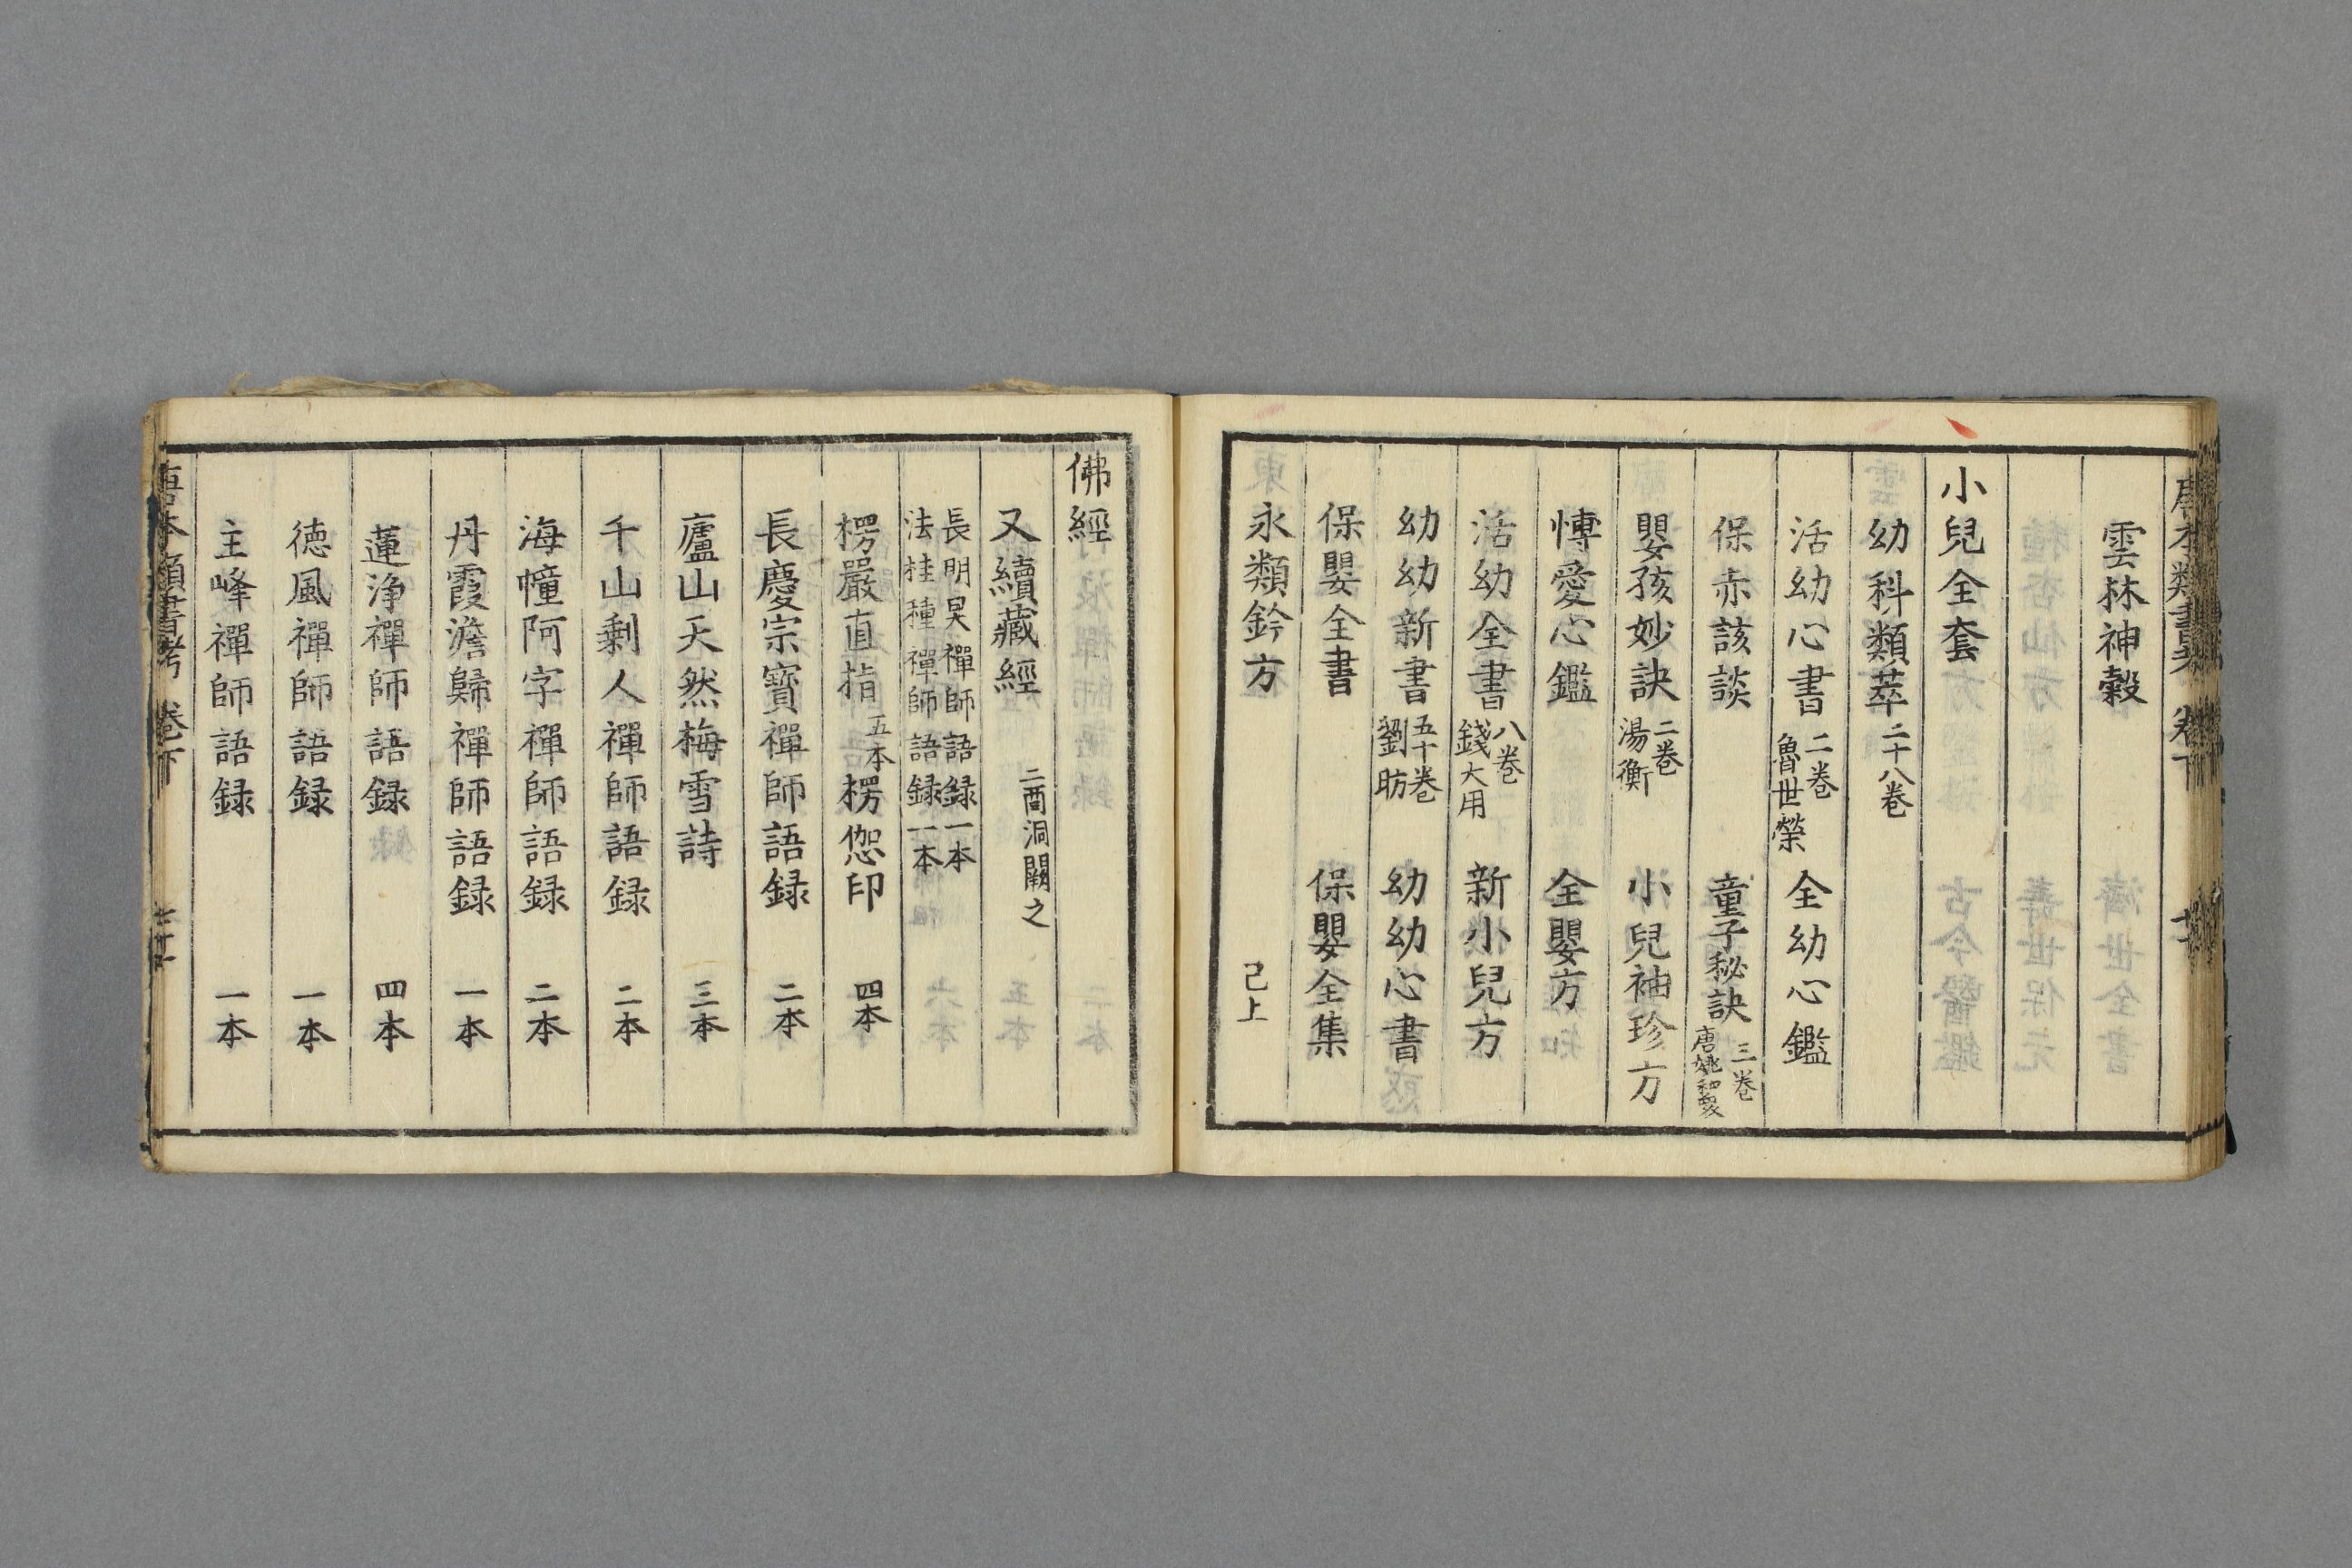 唐本類書考 卷下
雲林神縠
小兒全套
幼科類萃 二十八巻
活幼心書 二巻 魯世榮 全幼心鑑
保赤該談 童子秘訣 三巻 唐姚和衆
嬰孩妙訣 二巻 湯衡 小兒袖珍方
愽愛心鑑 全嬰方
活幼全書 八巻 錢大用 新小兒方
幼幼新書 五十巻 劉昉 幼幼心書
保嬰全書 保嬰全集
永類鈐方 已上
佛經
又續藏經 二酉洞闕之
長明昊禪師語録一本
法桂種禪師語録一本
楞嚴直指 五本 楞伽印 四本
長慶宗寶禪師語録 二本
廬山天然梅雪詩 三本
千山剩人禪師語録 二本
海幢阿字禪師語録 二本
丹霞澹歸禪師語録 一本
蓮浄禪師語録 四本
徳風禪師語録 一本
主峰禪師語録 一本
唐本類書考 卷下